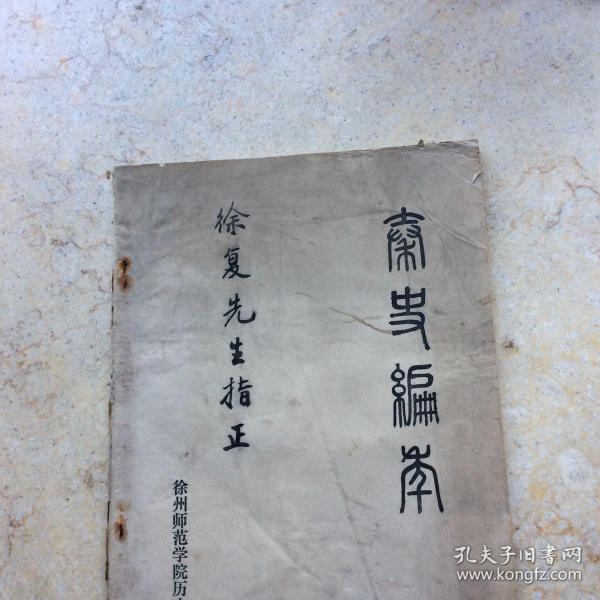 秦史编年
徐复先生指正
徐州师范学院历
孔夫子旧书网
www.kongfz.com